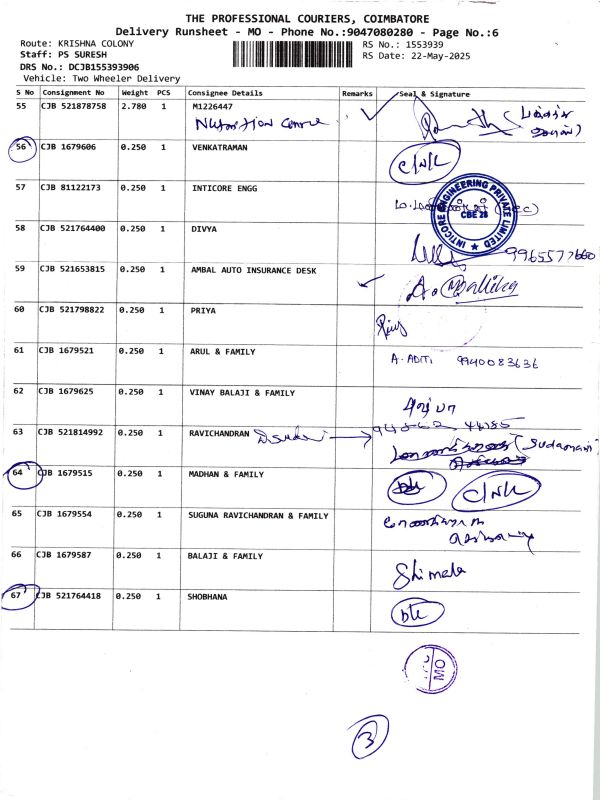 THE PROFESSIONAL COURIERS, COIMBATORE
Delivery Runsheet - MO - Phone No.:9047080280 - Page No.:6
Route: KRISHNA COLONY
RS No.: 1553939
Staff: PS SURESH
RS Date: 22-May-2025
DRS No.: DCJB155393906
Vehicle: Two Wheeler Delivery
S No Consignment No Weight PCS Consignee Details Remarks Seal & Signature
55 CJB 521878758 2.780 1 M1226447
56 CJB 1679606 0.250 1 VENKATRAMAN
C/N/L
57 CJB 81122173 0.250 1 INTICORE ENGG
INTICORE ENGINEERING PRIVATE LIMITED
CBE 28
58 CJB 521764400 0.250 1 DIVYA
9965577660
59 CJB 521653815 0.250 1 AMBAL AUTO INSURANCE DESK
60 CJB 521798822 0.250 1 PRIYA
61 CJB 1679521 0.250 1 ARUL & FAMILY
A. ADITI 9940083636
62 CJB 1679625 0.250 1 VINAY BALAJI & FAMILY
63 CJB 521814992 0.250 1 RAVICHANDRAN
64 CJB 1679515 0.250 1 MADHAN & FAMILY
C/N/L
65 CJB 1679554 0.250 1 SUGUNA RAVICHANDRAN & FAMILY
66 CJB 1679587 0.250 1 BALAJI & FAMILY
Shimela
67 CJB 521764418 0.250 1 SHOBHANA
dk
MO
3